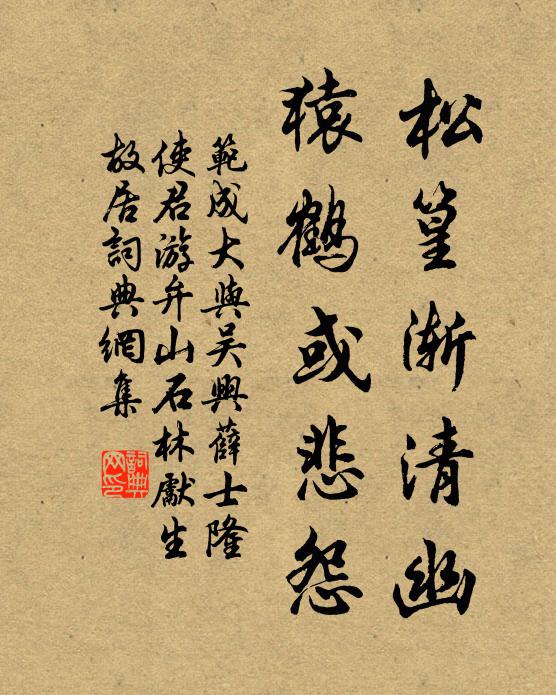 松篁渐清幽
猿鹤或悲怨
範成大與吴興薛士隆
使君游弁山石林獻生
故居詞典網集
詞典
网印